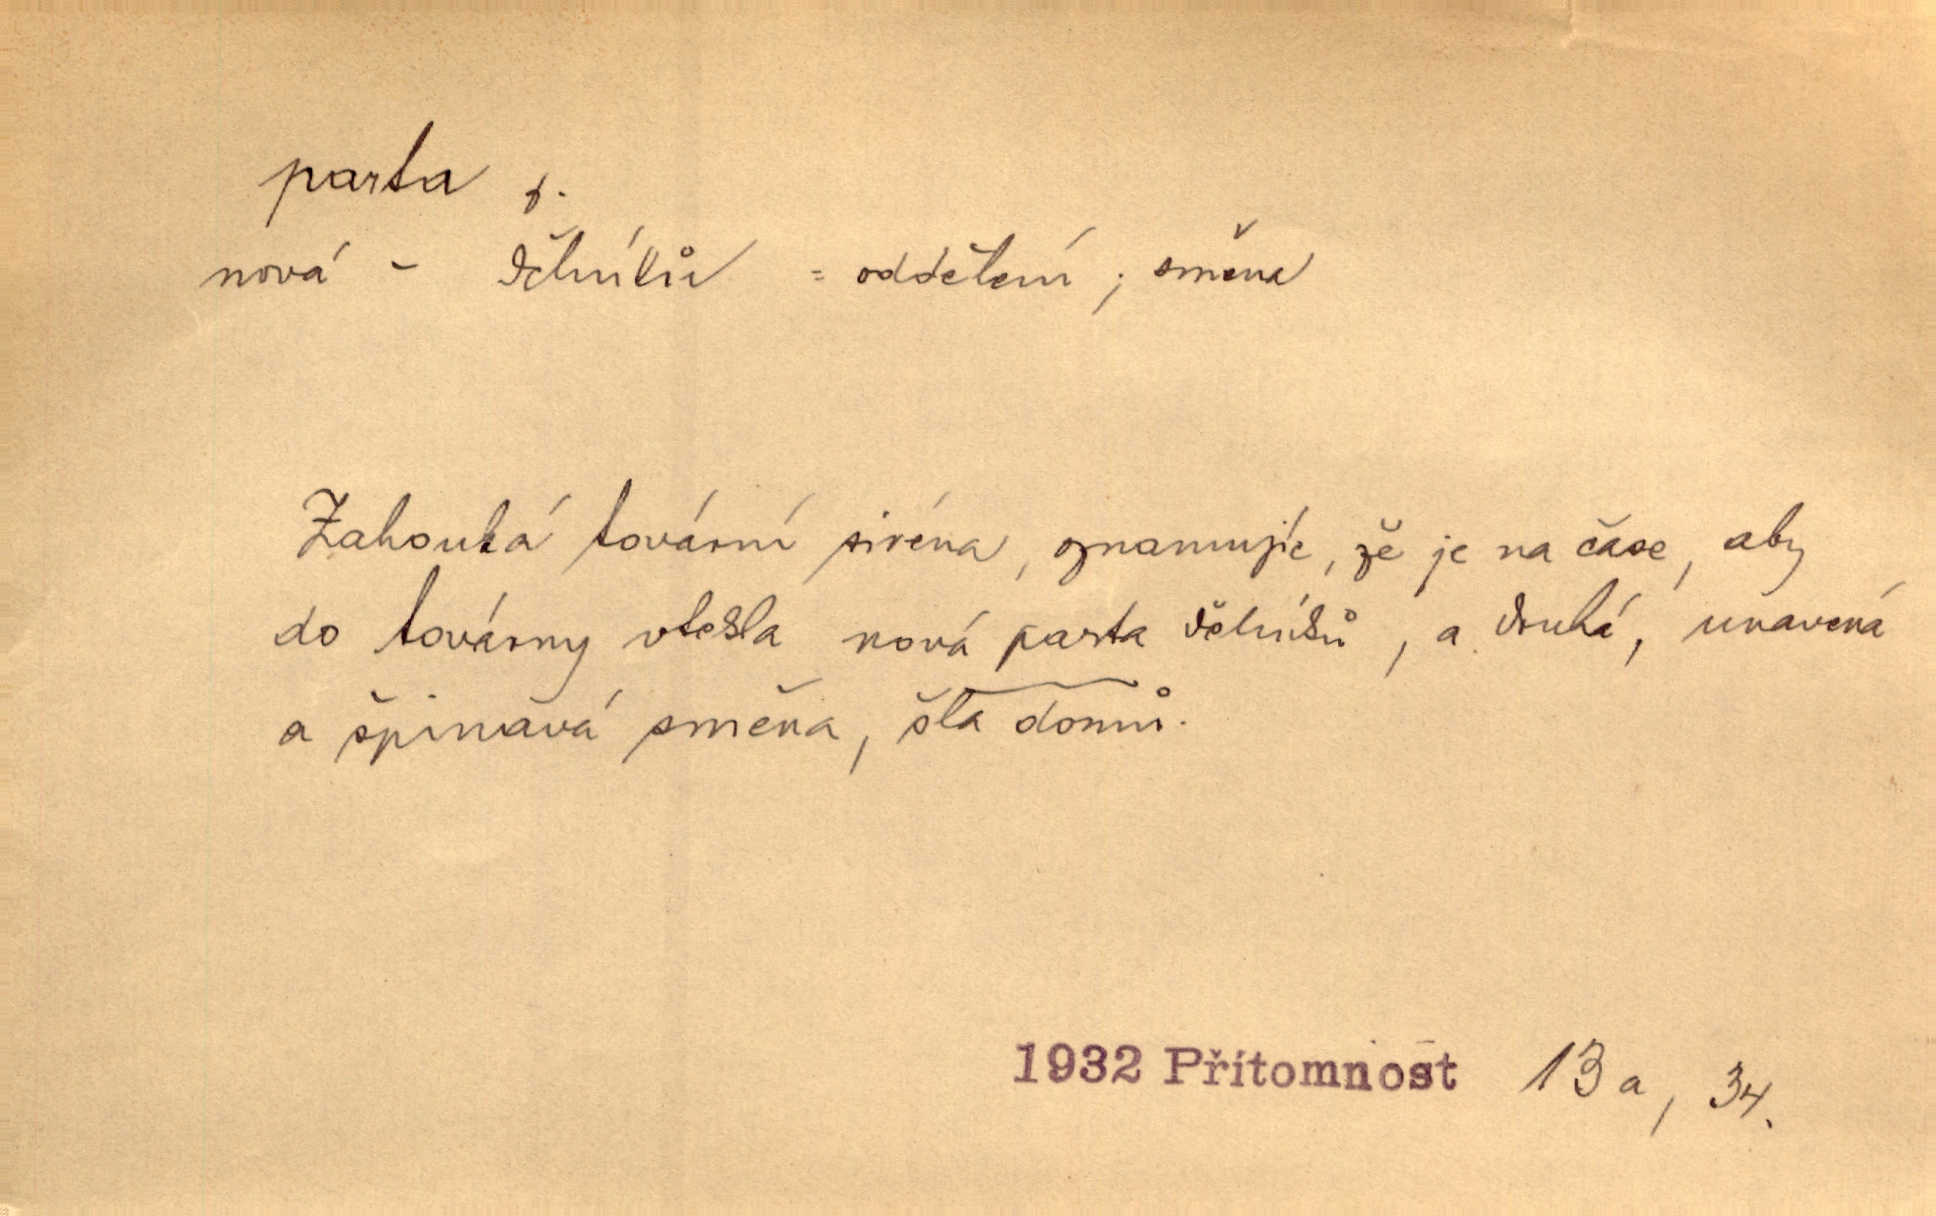 parta f.
nová - dělníků = oddělení ; směna
Zahouká tovární siréna, oznamujíc, že je na čase, aby
do továrny vlešla nová parta dělníků, a druhá, unavená
a špinavá směna, šla domů.
1932 Přítomnost 13a, 34.